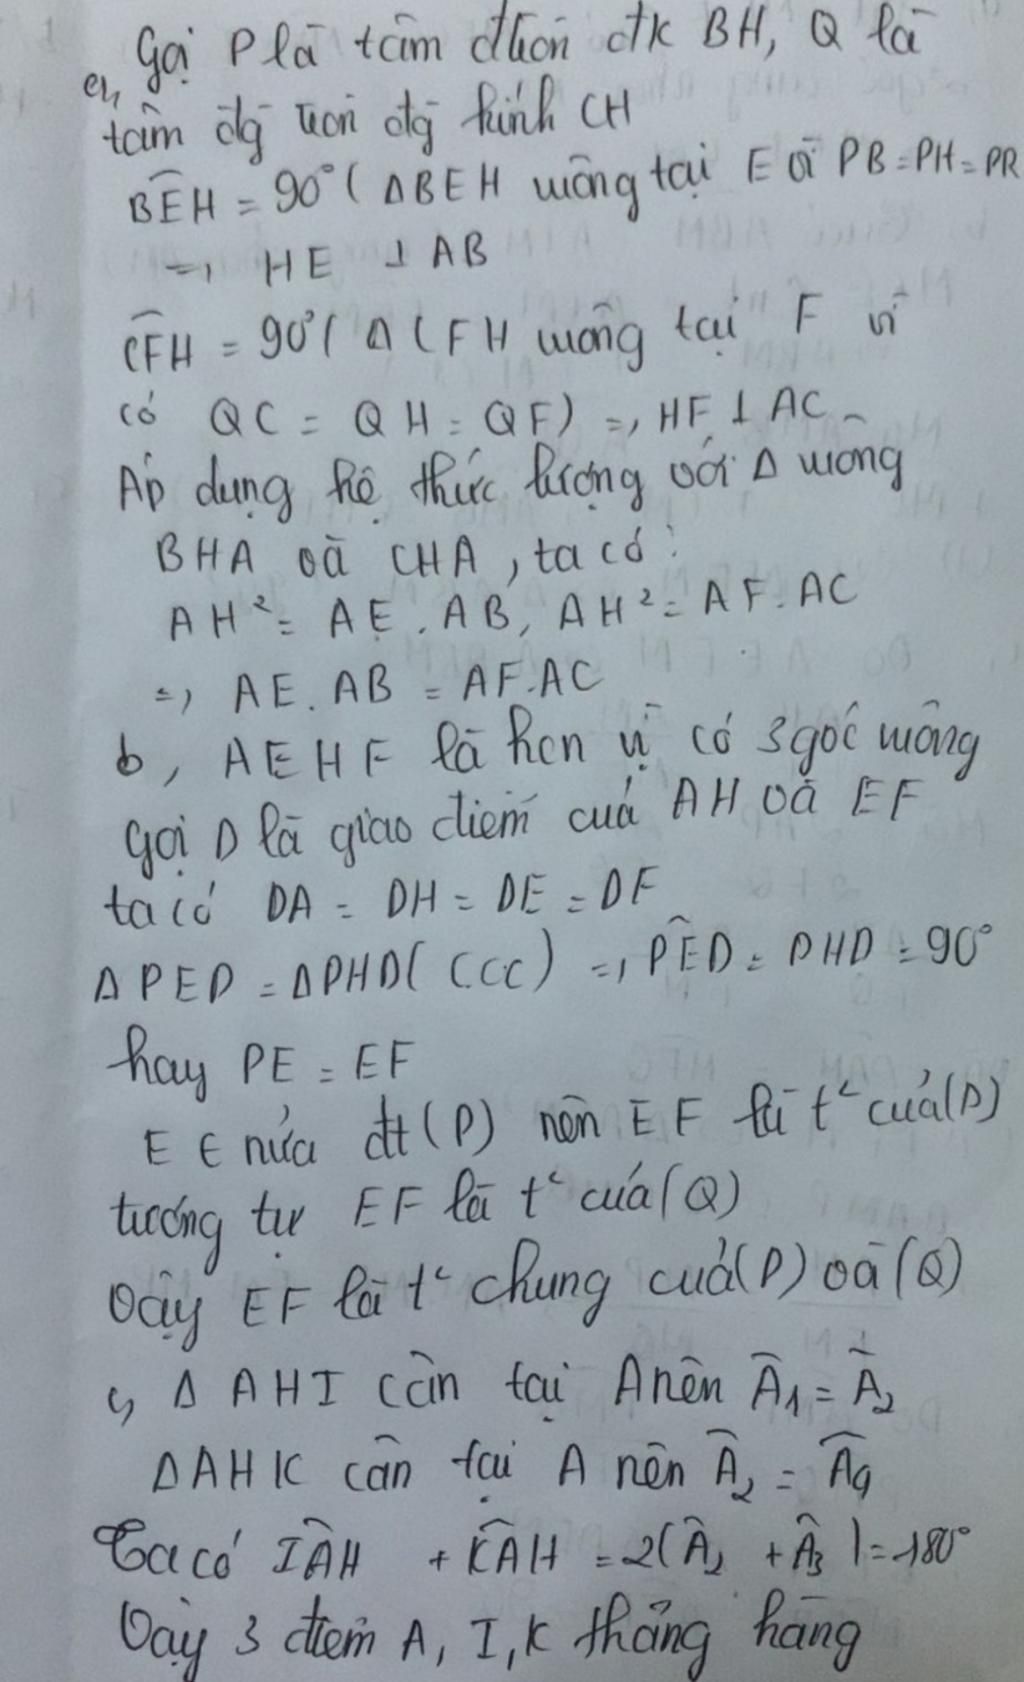 Gọi P là tâm đtròn đk BH, Q là
a, tâm đg tròn đg kính CH
BEH = 90° ( Δ BEH vuông tại E vì PB = PH = PR
=, HE ⊥ AB
CFH = 90° ( Δ CFH vuông tại F vì
có QC = QH = QF) =, HF ⊥ AC
Áp dụng hệ thức lượng với Δ vuông
BHA và CHA, ta có:
AH² = AE . AB, AH² = AF . AC
=, AE . AB = AF . AC
b, AEHF là hcn vì có 3 góc vuông
Gọi D là giao điểm của AH và EF
ta có DA = DH = DE = DF
Δ PED = Δ PHD ( CCC ) =, PED = PHD = 90°
hay PE = EF
E ∈ nửa đt (P) nên EF là t² của (P)
tương tự EF là t² của (Q)
Vậy EF là t² chung của (P) và (Q)
c, Δ AHI cân tại A nên A1 = A2
Δ AHK cân tại A nên A2 = A4
Ta có IAH + KAH = 2(A2 + A3) = 180°
Vậy 3 điểm A, I, K thẳng hàng